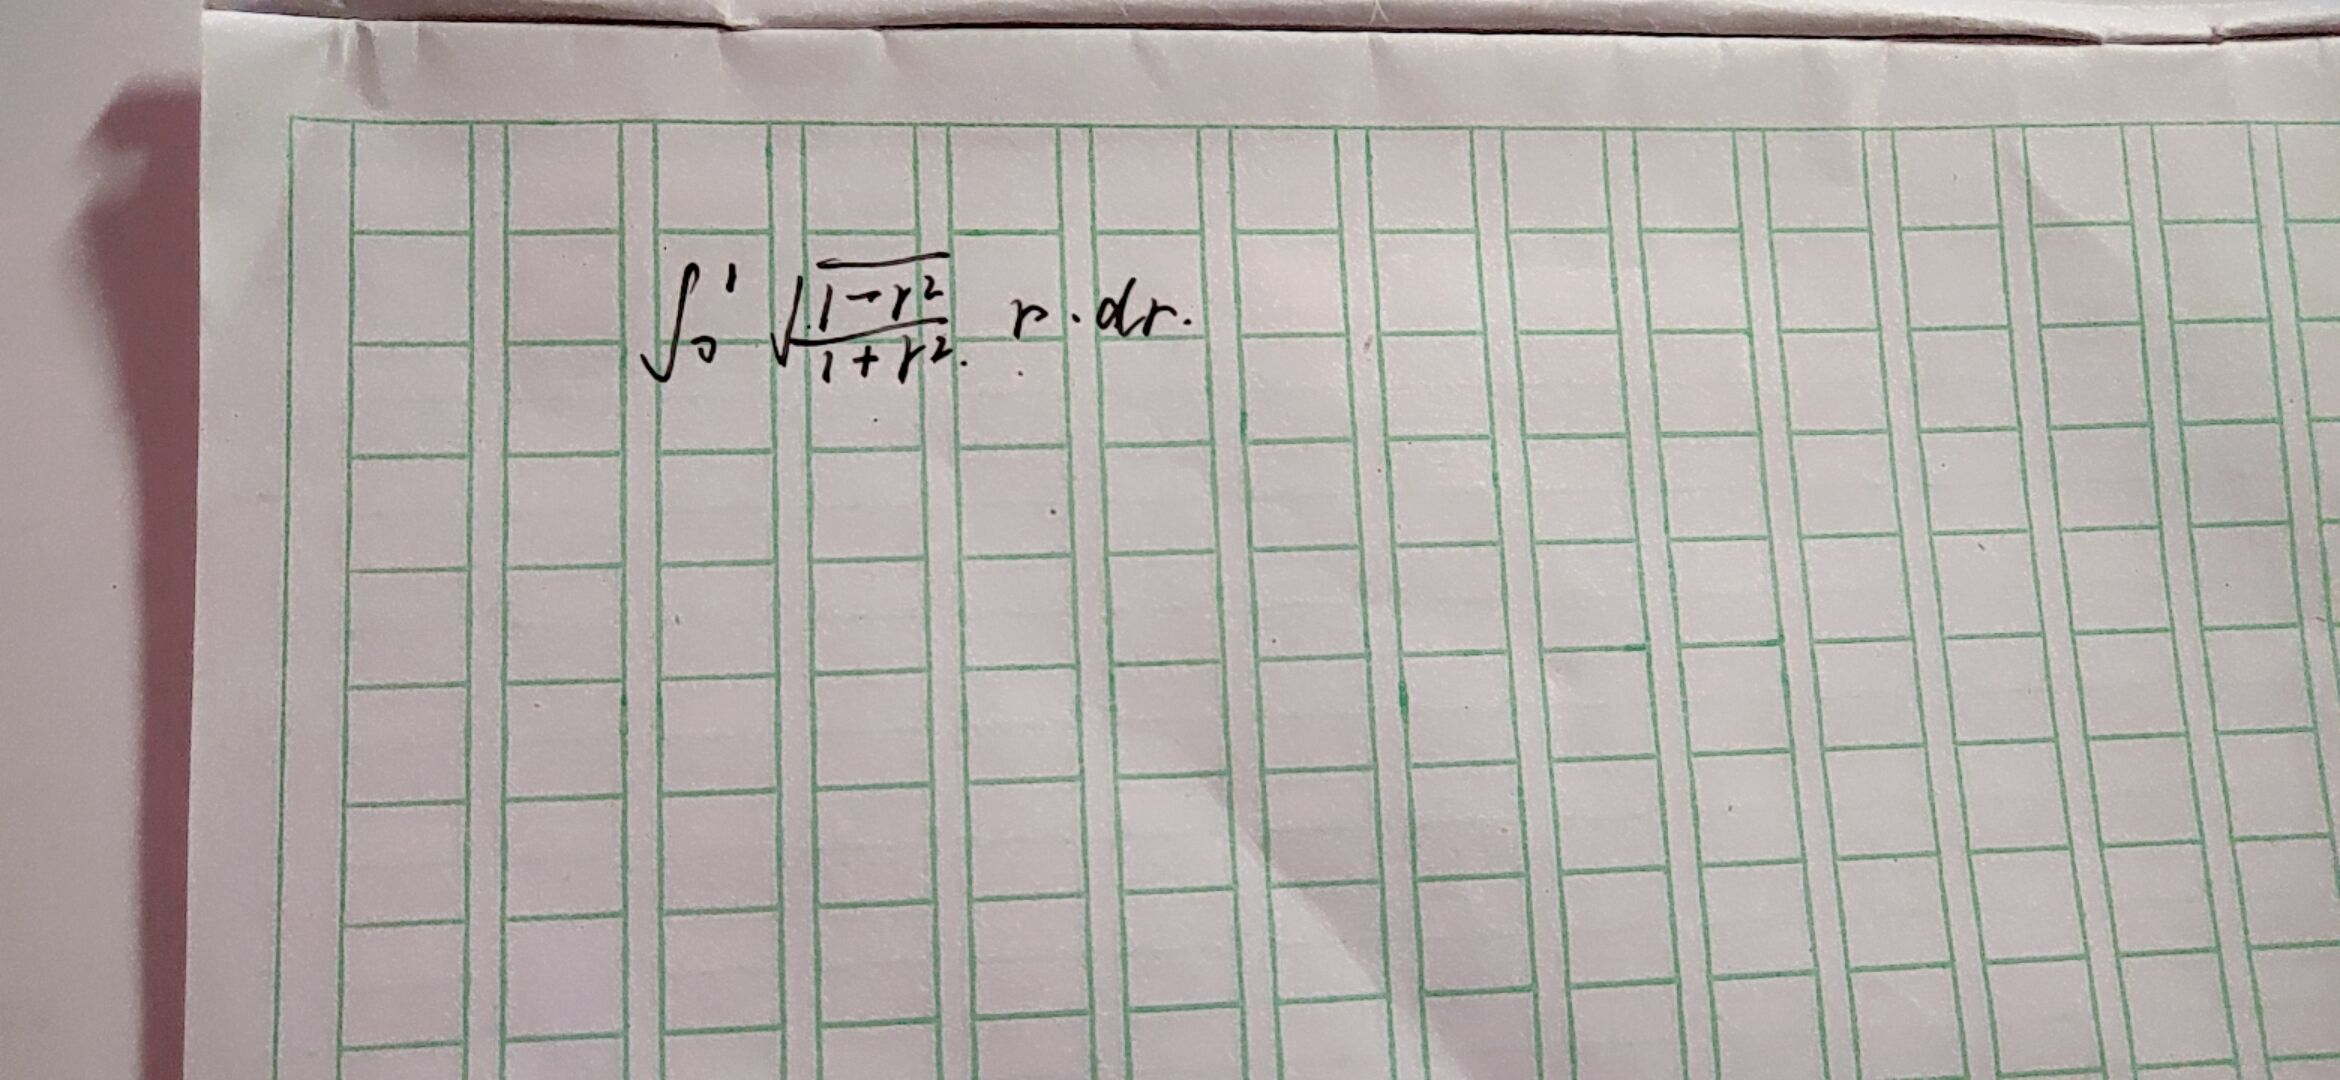 ∫₀¹ √((1-r²)/(1+r²)) r·dr.